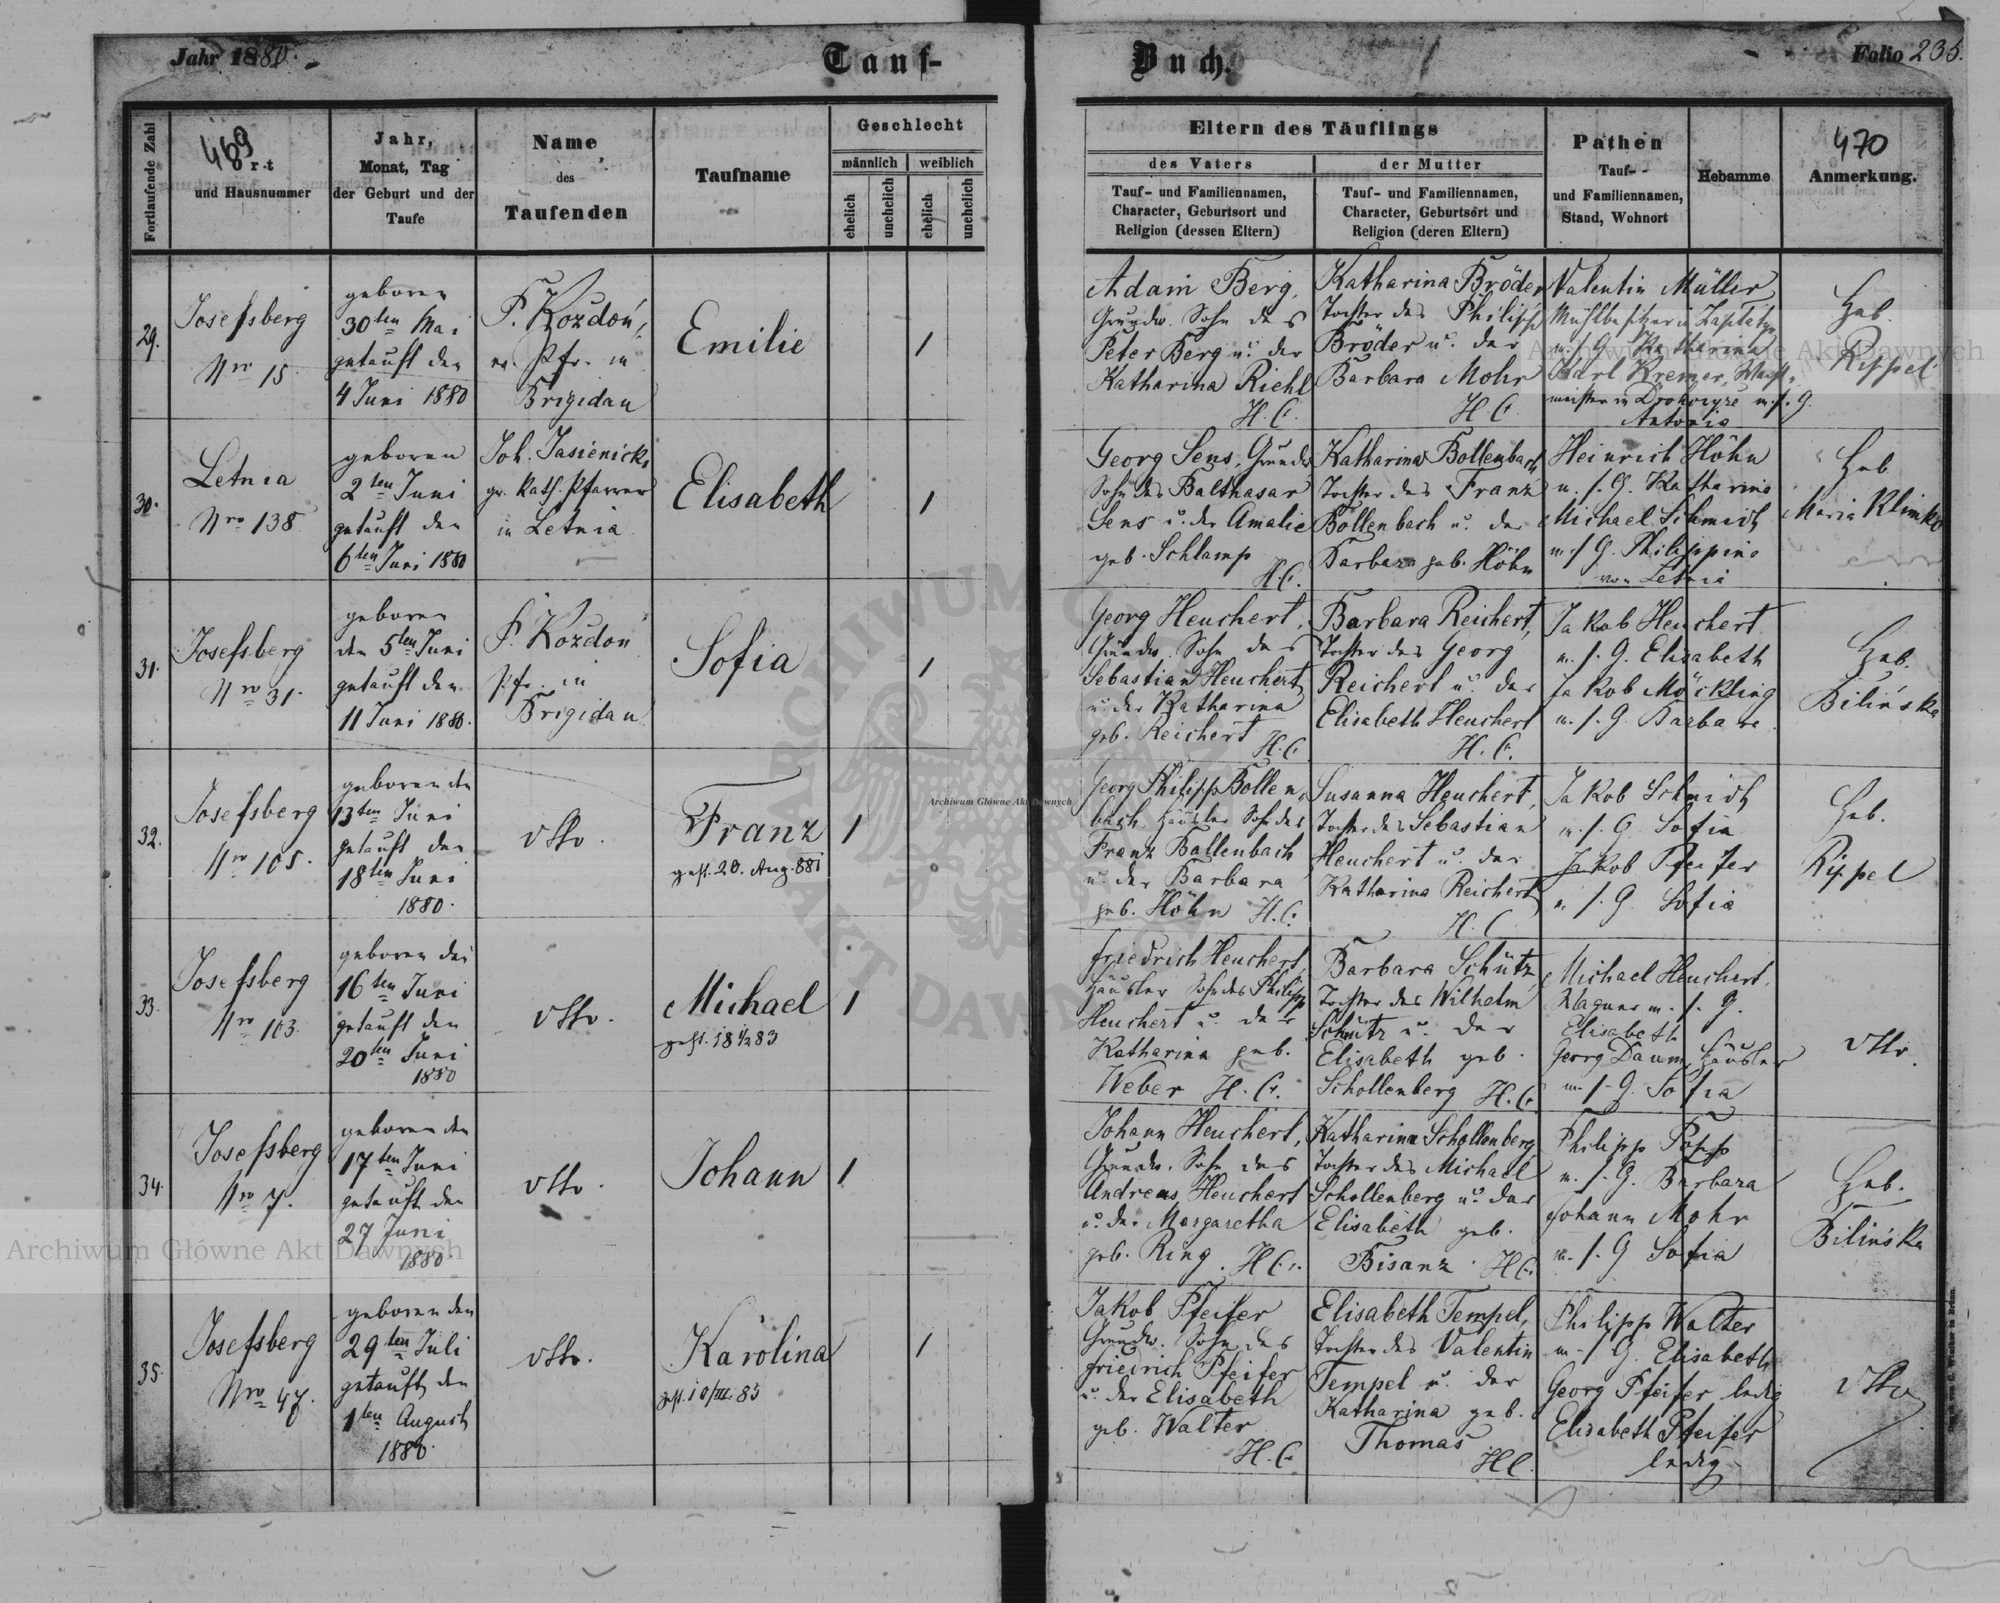 Jahr 1880.
Tauf-
Buch.
Folio 235.
Fortlaufende Zahl
469
Ort
und Hausnummer
Jahr,
Monat, Tag
der Geburt und der
Taufe
Name
des
Taufenden
Taufname
Geschlecht
männlich
weiblich
ehelich
unehelich
ehelich
unehelich
Eltern des Täuflings
des Vaters
Tauf- und Familiennamen,
Character, Geburtsort und
Religion (dessen Eltern)
der Mutter
Tauf- und Familiennamen,
Character, Geburtsort und
Religion (deren Eltern)
Pathen
Tauf-
und Familiennamen,
Stand, Wohnort
Hebamme
470
Anmerkung.
29.
Josefsberg
Nro 15.
geboren
30ten Mai
getauft den
4 Juni 1880
F. Kozdoń,
ev. Pfr. in
Brigidau
Emilie
1
Adam Berg,
Grundw. Sohn des
Peter Berg u. der
Katharina Riehl
H. C.
Katharina Bröder
Tochter des Philipp
Bröder u. der
Barbara Mohr
H C.
Valentin Müller
Mühlbesitzer in
u. s. G. Katharina
Karl Kremer,
meister in u. s. G.
Antonia
Heb.
Rippel
30.
Letnia
Nro 138
geboren
2ten Juni
getauft den
6ten Juni 1880
Joh. Jasienicki
gr. kath. Pfarrer
in Letnia
Elisabeth
1
Georg Sens, Grundw
Sohn des Balthasar
Sens u. der Amalie
geb. Schlamp
H. C.
Katharina Bollenbach
Tochter des Franz
Bollenbach u. der
Barbara geb. Höhn
Heinrich Höhn
u. s. G. Katharina
Michael Schmidt
u. s. G. Philippine
von Letnia
Heb
Maria Klimko
31.
Josefsberg
Nro 31.
geboren
den 5ten Juni
getauft den
11 Juni 1880.
F. Kozdoń
Pfr. in
Brigidau
Sofia
1
Georg Heuchert,
Grundw. Sohn des
Sebastian Heuchert
u. der Katharina
geb. Reichert H. C.
Barbara Reichert,
Tochter des Georg
Reichert u. der
Elisabeth Heuchert
H. C.
Jakob Heuchert
u. s. G. Elisabeth
Jakob Möckling
u. s. G. Barbara
Heb.
Bilińska
32.
Josefsberg
Nro 105.
geboren den
13ten Juni
getauft den
18ten Juni
1880.
dtto.
Franz
gest. 20. Aug. 881
1
Georg Philipp Bollen-
bach, Häusler Sohn des
Franz Bollenbach
u. der Barbara
geb. Höhn H. C.
Susanna Heuchert,
Tochter des Sebastian
Heuchert u. der
Katharina Reichert
H. C
Jakob Schmidt
u. s. G. Sofia
Jakob Pfeifer
u. s. G Sofia
Heb.
Rippel
33.
Josefsberg
Nro 103.
geboren den
16ten Juni
getauft den
20ten Juni
1880
dtto.
Michael
1
Friedrich Heuchert,
Häusler Sohn des Philipp
Heuchert u. der
Katharina geb.
Weber H. C.
Barbara Schütz,
Tochter des Wilhelm
Schütz u. der
Elisabeth geb.
Schollenberg H. C.
Michael Heuchert,
Wagner u. s. G.
Elisabeth
Georg Daum, Häusler
u. s. G. Sofia
dtto.
34.
Josefsberg
Nro 7.
geboren den
17ten Juni
getauft den
27 Juni
1880.
dtto.
Johann
1
Johann Heuchert,
Grundw. Sohn des
Andreas Heuchert
u. der Margaretha
geb. Ring. H. C.
Katharina Schollenberg,
Tochter des Michael
Schollenberg u. der
Elisabeth geb.
Bisanz H C.
Philipp Popp
u. s. G. Barbara
Johann Mohr
u. s. G Sofia
Heb.
Bilińska
35.
Josefsberg
Nro 47.
geboren den
29ten Juli
getauft den
1ten August
1880.
dtto.
Karolina
gest. 10/III. 85
1
Jakob Pfeifer
Grundw. Sohn des
Friedrich Pfeifer
u. der Elisabeth
geb. Walter
H. C.
Elisabeth Tempel,
Tochter des Valentin
Tempel u. der
Katharina geb.
Thomas
H C.
Philipp Walter
u. s G. Elisabeth
Georg Pfeifer ledig
Elisabeth Pfeifer
ledig
dtto
Archiwum Główne Akt Dawnych
Archiwum Główne Akt Dawnych
Archiwum Główne Akt Dawnych